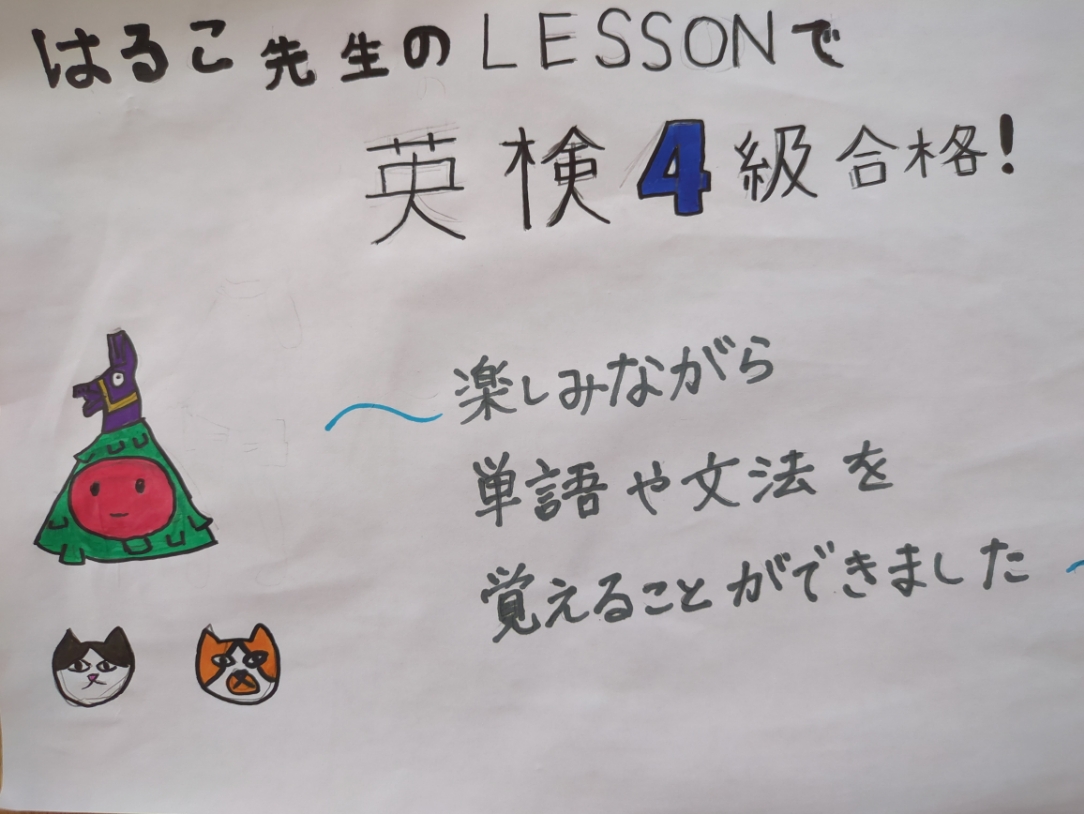 はるこ先生のLESSONで
英検4級合格!
〜楽しみながら
単語や文法を
覚えることができました〜